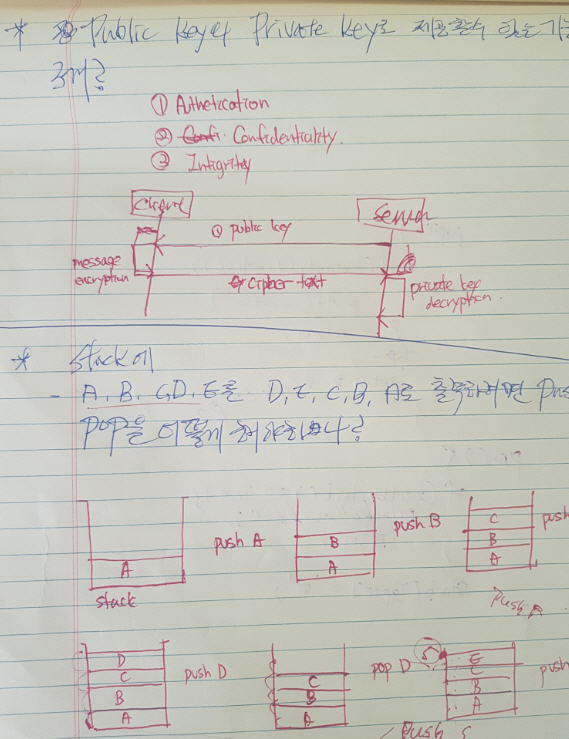 * Public key와 Private key로 제공할수 있는 기능
3개?
① Authetication
② Confi. Confidentiality.
③ Intigrity
Client
Server
① public key
message
encryption
② cipher-text
private key
decryption.
* Stack에
- A, B, C, D, E를 D, E, C, B, A로 출력하려면
POP을 어떻게 해야하나?
A
push A
B
A
push B
C
B
A
push
stack
push A
D
C
B
A
push D
C
B
A
pop D
E
C
B
A
push